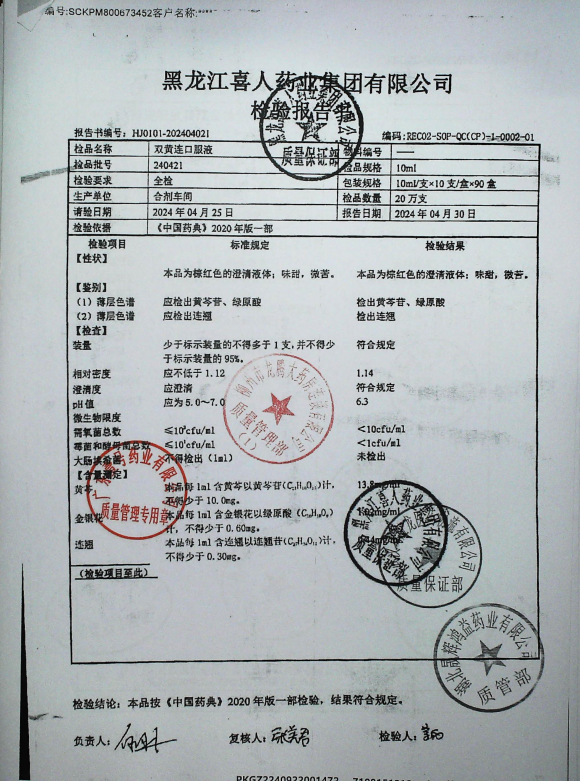 编号:SCKPM800673452客户名称:
黑龙江喜人药业集团有限公司
检验报告
报告书编号: HJ0101-202404021 编码:REC02-SOP-QC(CP)-1-0002-01
检品名称 双黄连口服液 物料编号 ——
检品批号 240421 检品规格 10ml
检验要求 全检 包装规格 10ml/支×10支/盒×90盒
生产单位 合剂车间 检品数量 20万支
请验日期 2024年04月25日 报告日期 2024年04月30日
检验依据 《中国药典》2020年版一部
检验项目 标准规定 检验结果
【性状】
本品为棕红色的澄清液体；味甜，微苦。 本品为棕红色的澄清液体；味甜，微苦。
【鉴别】
(1)薄层色谱 应检出黄芩苷、绿原酸 检出黄芩苷、绿原酸
(2)薄层色谱 应检出连翘 检出连翘
【检查】
装量 少于标示装量的不得多于1支,并不得少 符合规定
于标示装量的95%。
相对密度 应不低于1.12 1.14
澄清度 应澄清 符合规定
pH值 应为5.0~7.0 6.3
微生物限度
需氧菌总数 ≤10²cfu/ml <10cfu/ml
霉菌和酵母菌总数 ≤10¹cfu/ml <1cfu/ml
大肠埃希菌 不得检出(1ml) 未检出
【含量测定】
黄芩 本品每1ml含黄芩以黄芩苷(C₂₁H₁₈O₁₁)计, 13.8mg/ml
不得少于10.0mg。
金银花 本品每1ml含金银花以绿原酸(C₁₆H₁₈O₉) 1.02mg/ml
计,不得少于0.60mg。
连翘 本品每1ml含连翘以连翘苷(C₂₇H₃₄O₁₁)计,
不得少于0.30mg。
(检验项目至此)
黑龙江喜人药业集团有限公司
质量保证部
柳州市龙腾大药房连锁有限公司
质量管理部
(1)
药业有限公司
质量管理专用章
黑龙江喜人药业集团有限公司
质量保证部
有限公司
质量保证部
药业有限公司
质管部
检验结论：本品按《中国药典》2020年版一部检验，结果符合规定。
负责人: 复核人: 检验人: